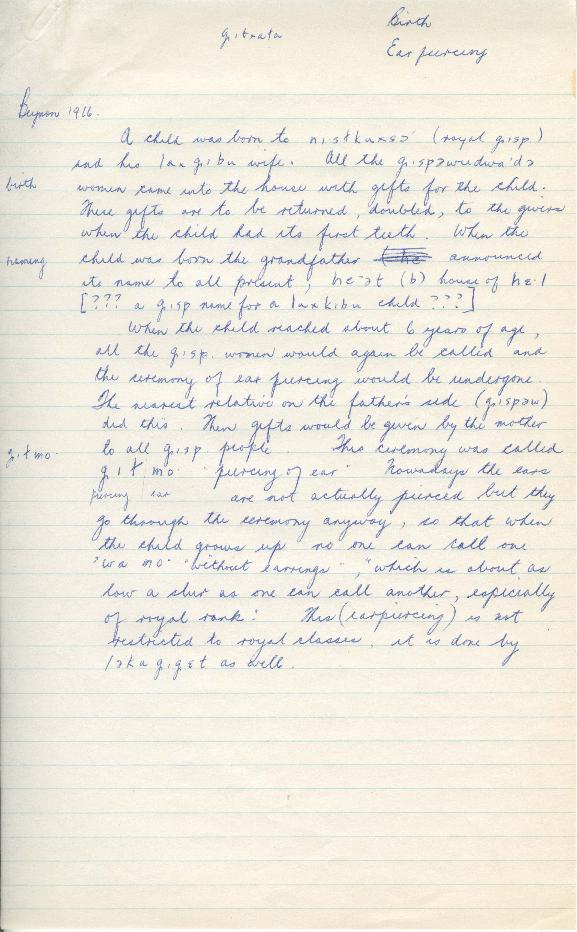 Birth
g.itxała
Ear piercing
Beynon 1916.
A child was born to (royal g.isp.)
and his lax g.ibu wife. All the g.ispəwudwa'də
birth
women came into the house with gifts for the child.
These gifts are to be returned, doubled, to the givers
when the child had its first teeth. When the
naming
child was born the grandfather announced
its name to all present, (b) house of
[??? a g.isp name for a laxkibu child ???]
When the child reached about 6 years of age,
all the g.isp. women would again be called and
the ceremony of ear piercing would be undergone
The nearest relative on the father's side (g.ispəw)
did this. Then gifts would be given by the mother
g.ił mo.
to all g.isp. people. This ceremony was called
g.ił mo. "piercing of ear" Nowadays the ears
piercing / ear are not actually pierced but they
go through the ceremony anyway, so that when
the child grows up no one can call one
"wa mo" "without earrings", "which is about as
low a slur as one can call another, especially
of royal rank". This (earpiercing) is not
restricted to royal classes, it is done by
ləka g.ig.et as well.